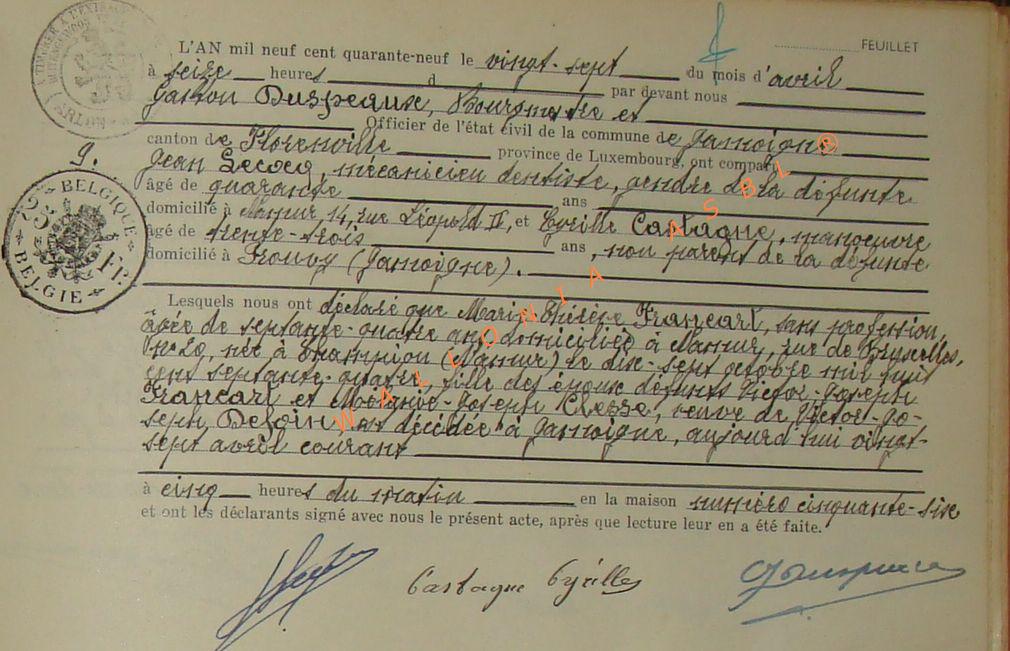 FEUILLET
L'AN mil neuf cent quarante-neuf le vingt-sept du mois d'avril
à seize heures d par devant nous
Gaston Duspeaux, Bourgmestre et
Officier de l'état civil de la commune de Jamoigne
canton de Florenville province de Luxembourg, ont comparu
9.
Jean Lecocq, mécanicien dentiste, gendre de la défunte
âgé de quarante ans
domicilié à Namur, 14, rue Léopold II, et Cyrille Castagne, manœuvre
âgé de trente-trois ans, non parent de la défunte
domicilié à Prouvy (Jamoigne).
Lesquels nous ont déclaré que Marie-Thérèse Francart, sans profession,
âgée de septante-quatre ans, domiciliée à Namur, rue de Bruxelles,
n° 29, née à Champion (Namur) le dix-sept octobre mil huit
cent septante-quatre, fille des époux défunts Victor-Joseph
Francart et Joseph Clesse, veuve de Victor-Jo-
seph Deloin est décédée à Jamoigne, aujourd'hui vingt-
sept avril courant
à cinq heures du matin en la maison numéro cinquante-six
et ont les déclarants signé avec nous le présent acte, après que lecture leur en a été faite.
Castagne Cyrille
BELGIQUE
25 Fr.
BELGIE
WALLONIA ASBL ®